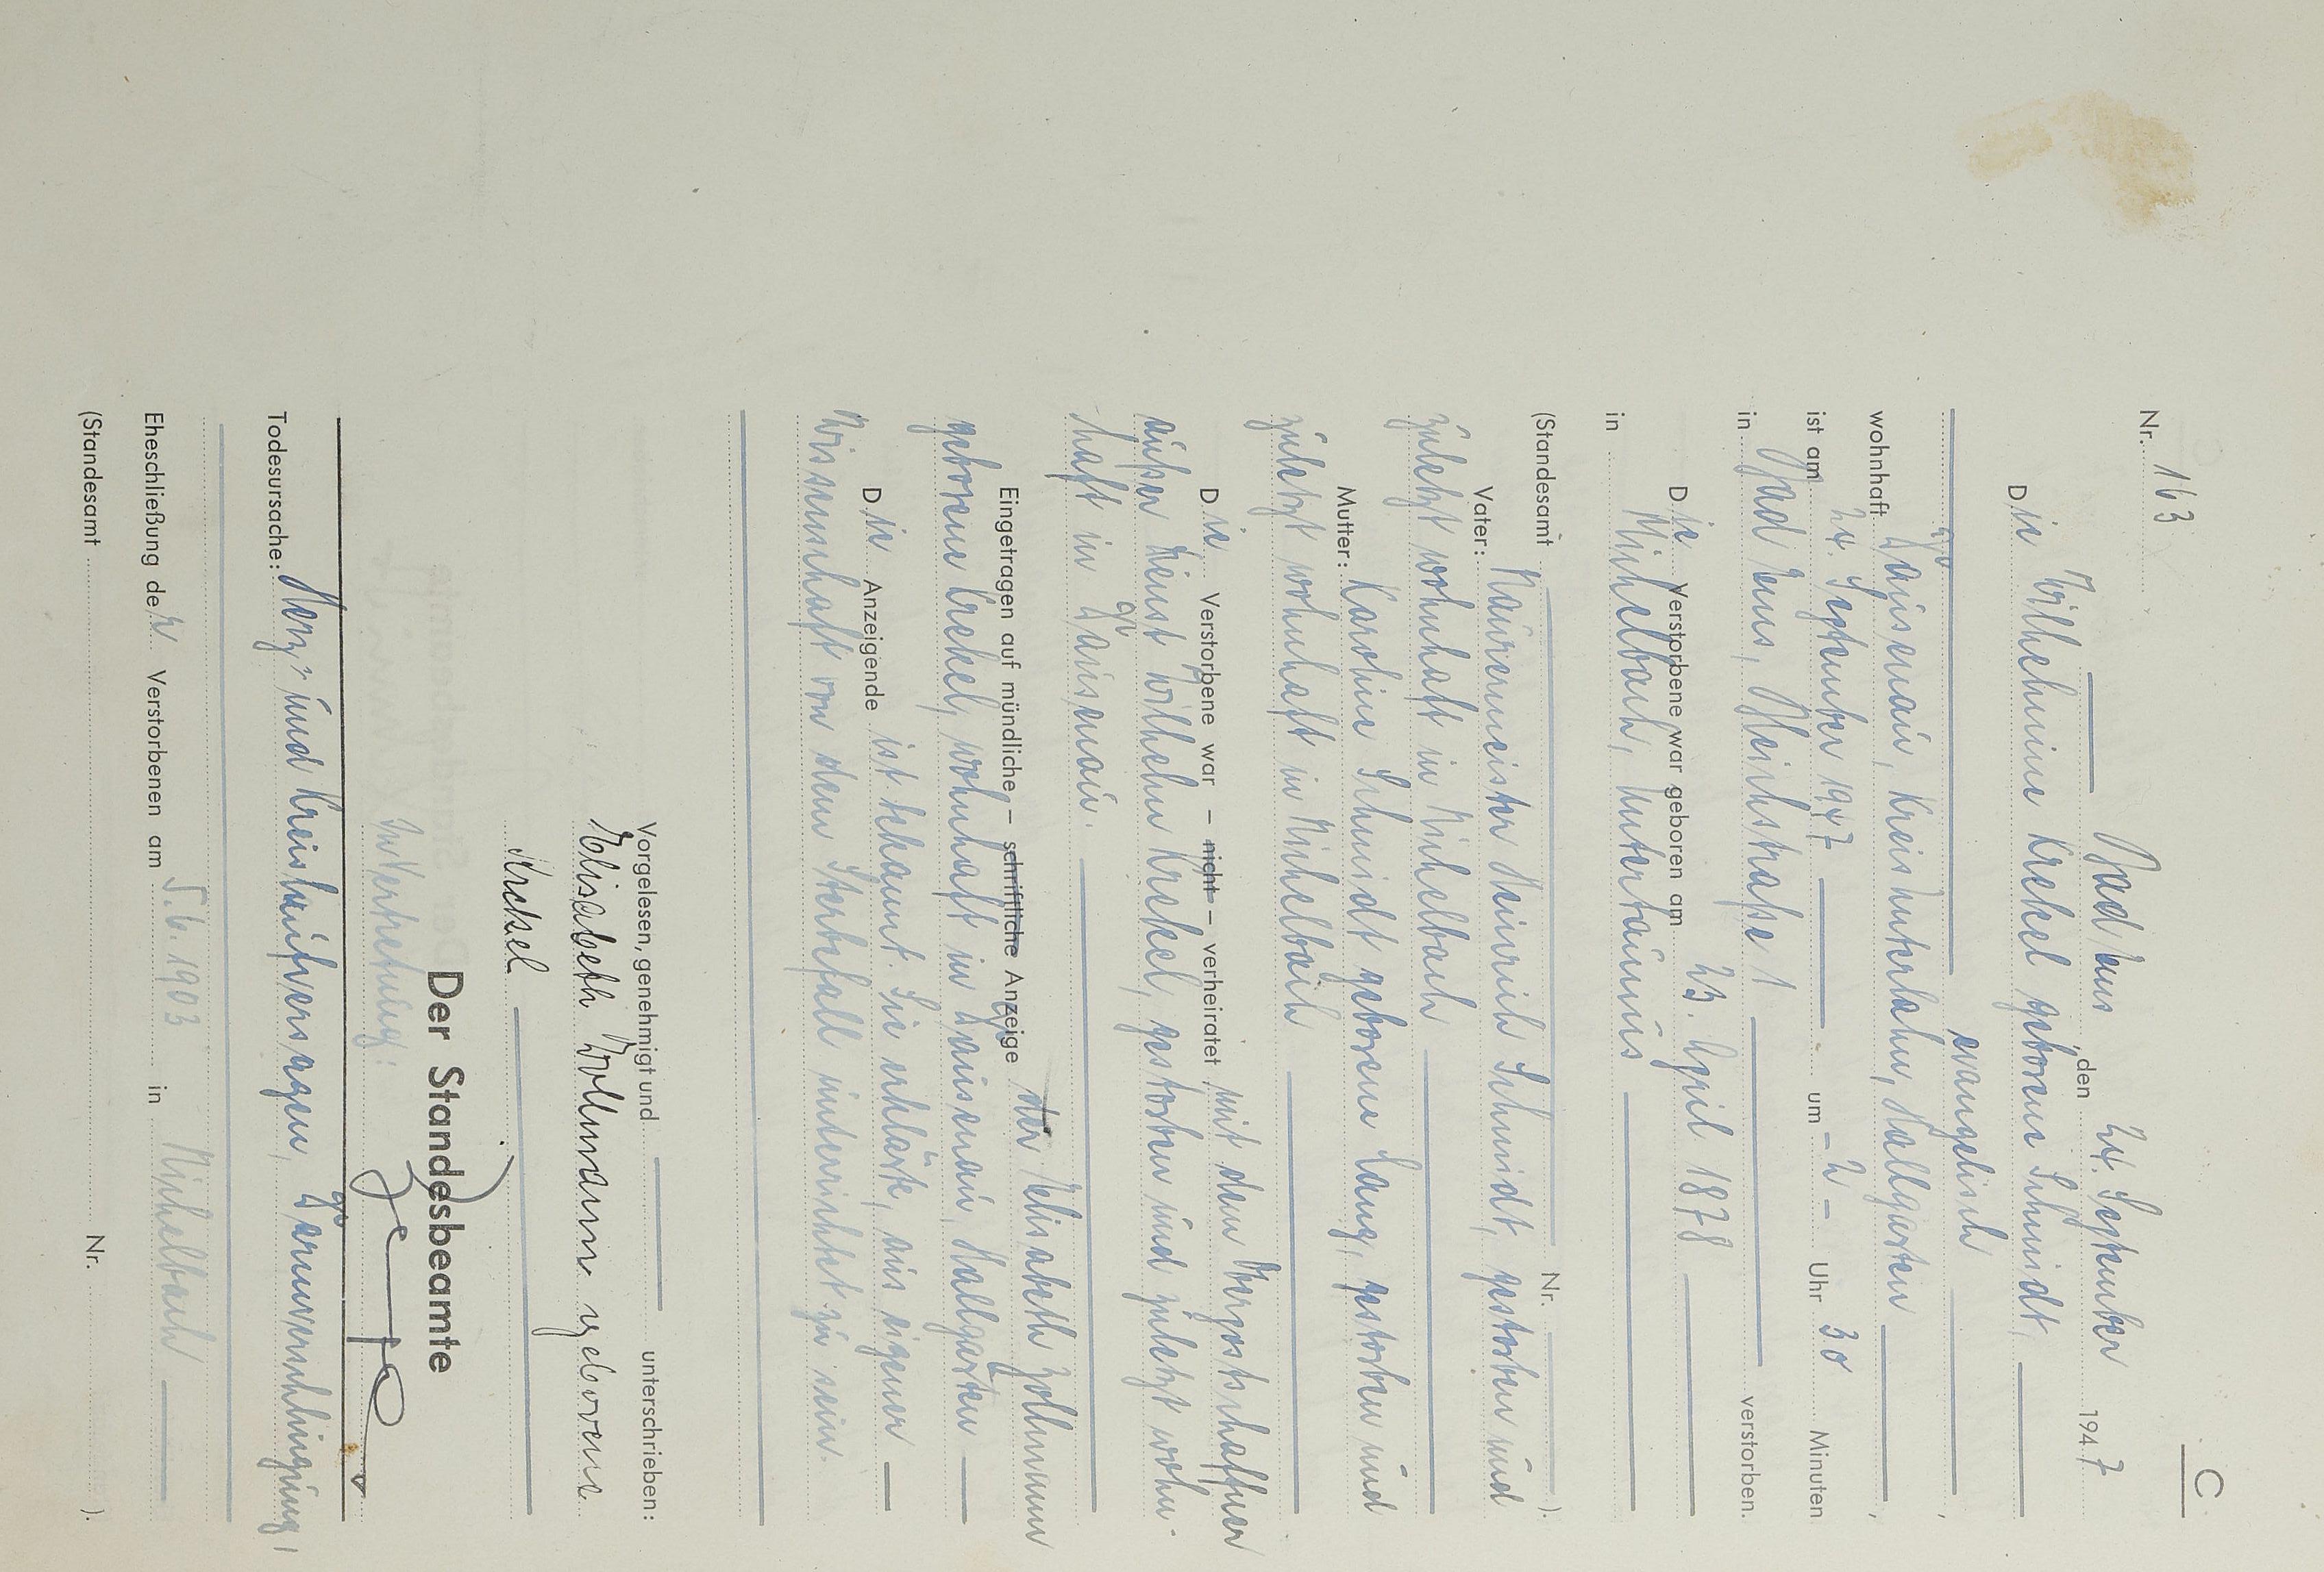 C
Nr. 163
Bad Ems, den 24. September 1947
Die Wilhelmine Krekel geborene Schmidt,
evangelisch,
wohnhaft Dausenau, Kreis Unterlahn, Hallgarten,
ist am 24. September 1947 um - 2 - Uhr 30 Minuten
in Bad Ems, Bleichstraße 1 verstorben.
Die Verstorbene war geboren am 23. April 1878
in Michelbach, Untertaunus
(Standesamt Nr. ).
Vater: Maurermeister Heinrich Schmidt, gestorben und
zuletzt wohnhaft in Michelbach
Mutter: Karoline Schmidt geborene Lang, gestorben und
zuletzt wohnhaft in Michelbach
Die Verstorbene war – nicht – verheiratet mit dem
außer Dienst Wilhelm Krekel, gestorben und zuletzt wohn-
haft in Dausenau.
Eingetragen auf mündliche – schriftliche Anzeige der Elisabeth Zollmann
geborene Krekel, wohnhaft in Dausenau, Hallgarten
Die Anzeigende ist bekannt. Sie erklärte, aus eigener
Wissenschaft von dem Sterbefall unterrichtet zu sein.
Vorgelesen, genehmigt und unterschrieben:
Elisabeth Zollmann geborene
Krekel
Der Standesbeamte
In Vertretung:
Todesursache: Herz- und Kreislaufversagen, Darmverschlingung,
Eheschließung der Verstorbenen am 5.6.1903 in Michelbach
(Standesamt Nr. ).